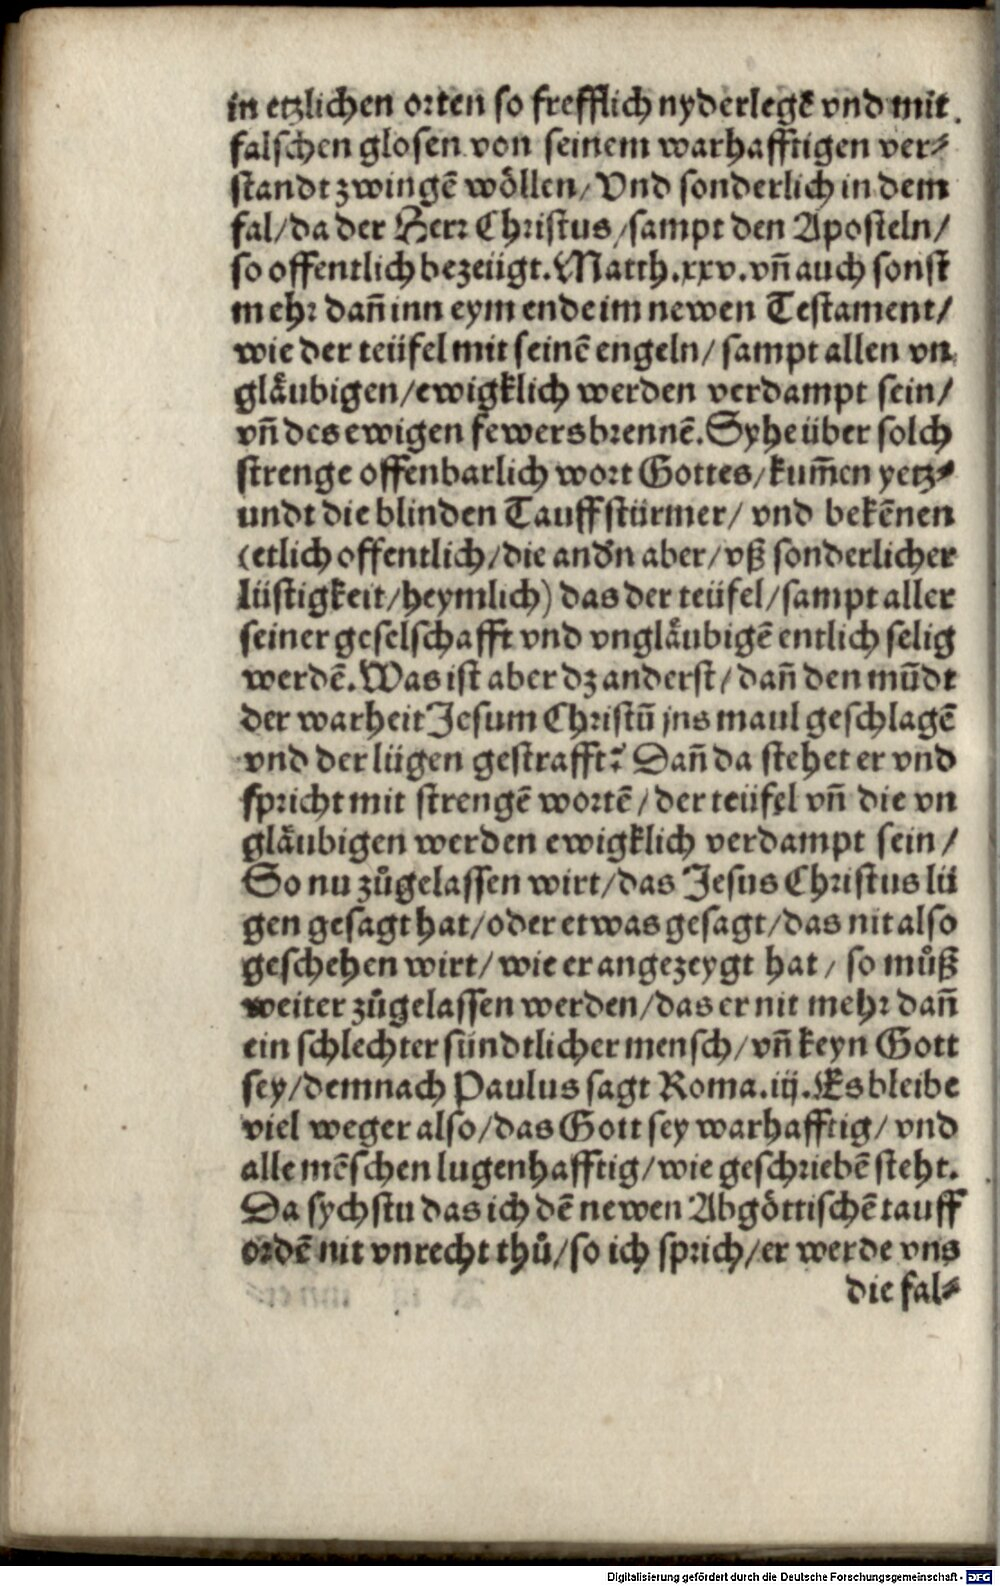 in etzlichen orten so frefflich nyderlegē vnd mit
falschen glosen von seinem warhafftigen ver-
standt zwingē wöllen/ Vnd sonderlich in dem
fal/ da der Herr Christus/ sampt den Aposteln/
so offentlich bezeügt. Matth. xxv. vñ auch sonst
mehr dañ inn eym ende im newen Testament/
wie der teüfel mit seinē engeln/ sampt allen vn
gläubigen/ ewigklich werden verdampt sein/
vñ des ewigen fewers brennē. Syhe über solch
strenge offenbarlich wort Gottes/ kum̄en yetz-
undt die blinden Tauffstürmer/ vnd bekēnen
(etlich offentlich/ die andn aber/ vß sonderlicher
lüstigkeit/ heymlich) das der teüfel/ sampt aller
seiner geselschafft vnd vngläubigē entlich selig
werdē. Was ist aber dz anderst/ dañ den mūdt
der warheit Jesum Christū jns maul geschlagē
vnd der lügen gestrafft? Dañ da stehet er vnd
spricht mit strengē wortē/ der teüfel vñ die vn
gläubigen werden ewigklich verdampt sein/
So nu zůgelassen wirt/ das Jesus Christus lü
gen gesagt hat/ oder etwas gesagt/ das nit also
geschehen wirt/ wie er angezeygt hat/ so můß
weiter zůgelassen werden/ das er nit mehr dañ
ein schlechter sündtlicher mensch/ vñ keyn Gott
sey/ demnach Paulus sagt Roma. iij. Es bleibe
viel weger also/ das Gott sey warhafftig/ vnd
alle mēschen lugenhafftig/ wie geschriebē steht.
Da sychstu das ich dē newen Abgöttischē tauff
ordē nit vnrecht thů/ so ich sprich/ er werde vns
die fal-
Digitalisierung gefördert durch die Deutsche Forschungsgemeinschaft - DFG